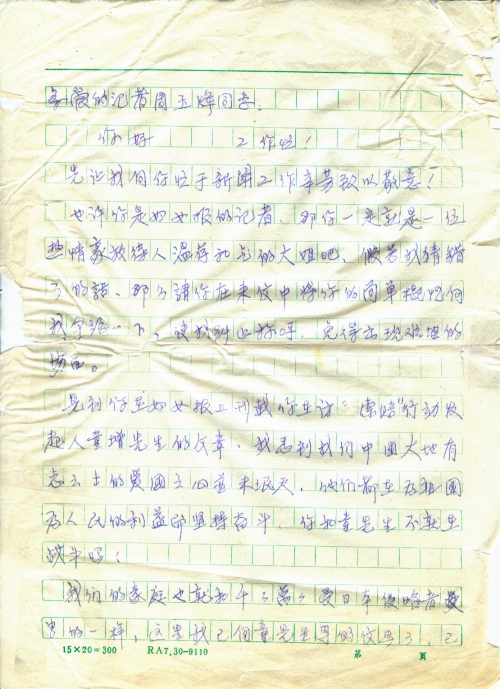 亲爱的记者周玉嶂同志.
你好 工作忙!
先让我向你忙于新闻工作辛劳致以敬意!
也许你是妇女报的记者、那你一定就是一位
热情豪放待人温存和气的大姐吧. 假若我猜错
了的話、那么請你在来仪中将你的简单概况向
我介绍一下, 使我纠正称呼. 免得出现难堪的
场面。
见到你在妇女报上刊载你采访“索赔”行动发
起人童增先生的文章. 我感到我们中国大地有
志之士的爱国之心并未泯灭, 他们都在为祖国
为人民的利益而坚持奋斗. 你和童先生不就在
战斗吗!
我们的家庭也就和千千萬萬受日本侵略者
害的一样, 这里我已向童先生写的信写了, 已
15×20=300 RA7.30-9110 第 頁